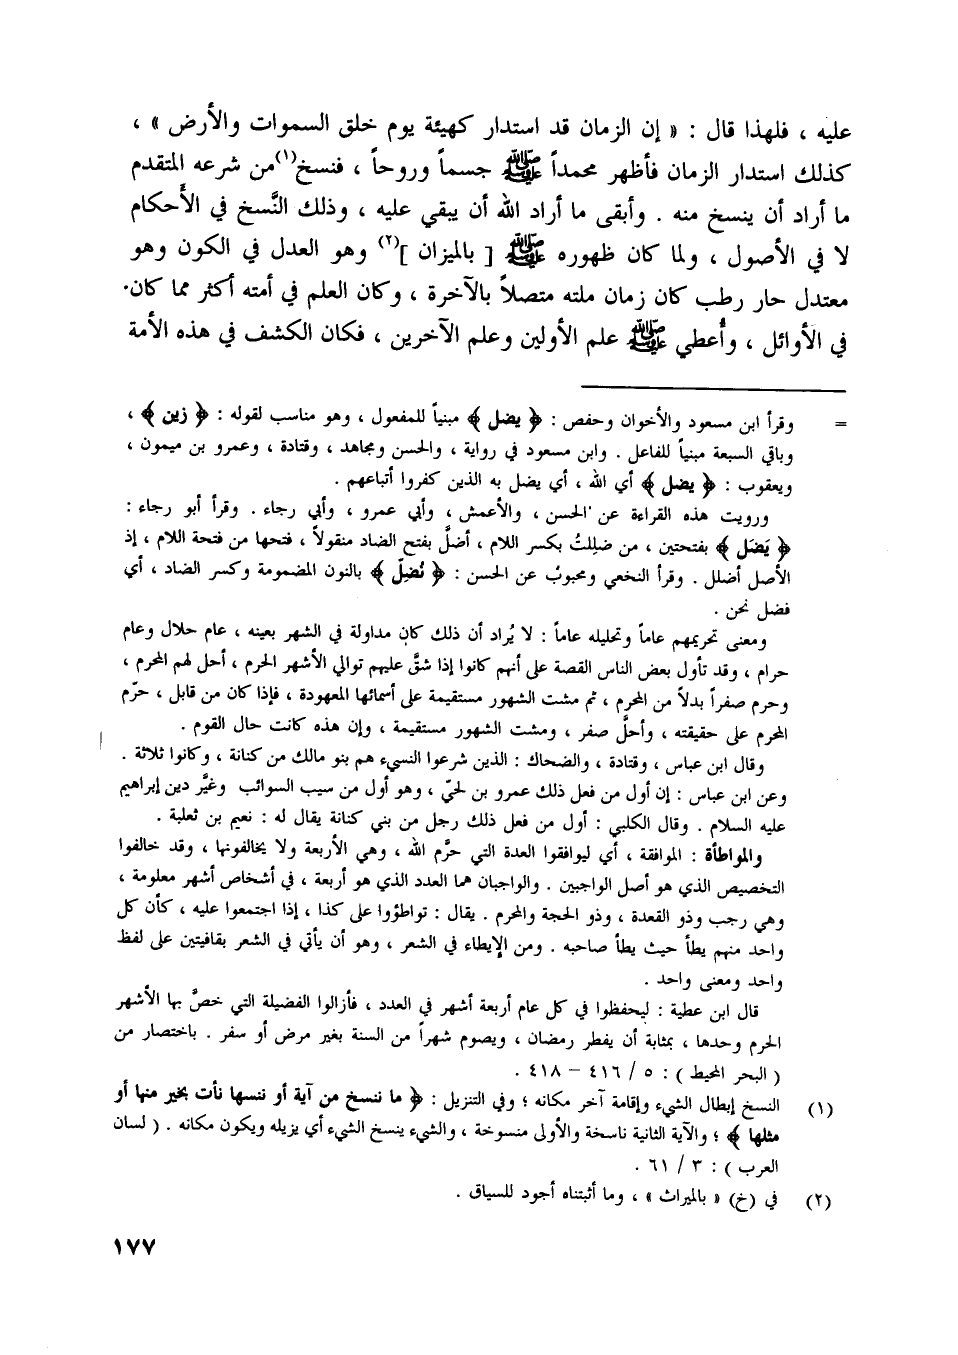 عليه ، فلهذا قال : « إن الزمان قد استدار كهيئة يوم خلق السموات والأرض » ،
كذلك استدار الزمان فأظهر محمداً ﷺ جسماً وروحاً ، فنسخ(١)من شرعه المتقدم
ما أراد أن ينسخ منه . وأبقى ما أراد الله أن يبقي عليه ، وذلك النَّسخ في الأحكام
لا في الأصول ، ولما كان ظهوره ﷺ [ بالميزان ](٢) وهو العدل في الكون وهو
معتدل حار رطب كان زمان ملته متصلاً بالآخرة ، وكان العلم في أمته أكثر مما كان
في الأوائل ، وأُعطي ﷺ علم الأولين وعلم الآخرين ، فكان الكشف في هذه الأمة
= وقرأ ابن مسعود والأخوان وحفص : ﴿ يضل ﴾ مبنياً للمفعول ، وهو مناسب لقوله : ﴿ زين ﴾ ،
وباقي السبعة مبنياً للفاعل . وابن مسعود في رواية ، والحسن ومجاهد ، وقتادة ، وعمرو بن ميمون ،
ويعقوب : ﴿ يضل ﴾ أي الله ، أي يضل به الذين كفروا أتباعهم .
ورويت هذه القراءة عن الحسن ، والأعمش ، وأبي عمرو ، وأبي رجاء . وقرأ أبو رجاء :
﴿ يَضَل ﴾ بفتحتين ، من ضلِلتُ بكسر اللام ، أضلَّ بفتح الضاد منقولاً ، فتحها من فتحة اللام ، إذ
الأصل أضلل . وقرأ النخعي ومحبوبٌ عن الحسن : ﴿ نُضِلّ ﴾ بالنون المضمومة وكسر الضاد ، أي
فضل نحن .
ومعنى تحريمهم عاماً وتحليله عاماً : لا يُراد أن ذلك كان مداولة في الشهر بعينه ، عام حلال وعام
حرام ، وقد تأول بعض الناس القصة على أنهم كانوا إذا شقَّ عليهم توالي الأشهر الحرم ، أحل لهم المحرم ،
وحرم صفراً بدلاً من المحرم ، ثم مشت الشهور مستقيمة على أسمائها المعهودة ، فإذا كان من قابل ، حرّم
المحرم على حقيقته ، وأحلَّ صفر ، ومشت الشهور مستقيمة ، وإن هذه كانت حال القوم .
وقال ابن عباس ، وقتادة ، والضحاك : الذين شرعوا النسيء هم بنو مالك من كنانة ، وكانوا ثلاثة .
وعن ابن عباس : إن أول من فعل ذلك عمرو بن لحيّ ، وهو أول من سيب السوائب وغيَّر دين إبراهيم
عليه السلام . وقال الكلبي : أول من فعل ذلك رجل من بني كنانة يقال له : نعيم بن ثعلبة .
والمواطأة : الموافقة ، أي ليوافقوا العدة التي حرَّم الله ، وهي الأربعة ولا يخالفونها ، وقد خالفوا
التخصيص الذي هو أصل الواجبين . والواجبان هما العدد الذي هو أربعة ، في أشخاص أشهر معلومة ،
وهي رجب وذو القعدة ، وذو الحجة والمحرم . يقال : تواطؤوا على كذا ، إذا اجتمعوا عليه ، كأن كل
واحد منهم يطأ حيث يطأ صاحبه . ومن الإيطاء في الشعر ، وهو أن يأتي في الشعر بقافيتين على لفظ
واحد ومعنى واحد .
قال ابن عطية : ليحفظوا في كل عام أربعة أشهر في العدد ، فأزالوا الفضيلة التي خصَّ بها الأشهر
الحرم وحدها ، بمثابة أن يفطر رمضان ، ويصوم شهراً من السنة بغير مرض أو سفر . باختصار من
( البحر المحيط ) : ٥ / ٤١٦ – ٤١٨ .
(١) النسخ إبطال الشيء وإقامة آخر مكانه ؛ وفي التنزيل : ﴿ ما ننسخ من آية أو ننسها نأت بخير منها أو
مثلها ﴾ ؛ والآية الثانية ناسخة والأولى منسوخة ، والشيء ينسخ الشيء أي يزيله ويكون مكانه . ( لسان
العرب ) : ٣ / ٦١ .
(٢) في (خ) « بالميراث » ، وما أثبتناه أجود للسياق .
١٧٧